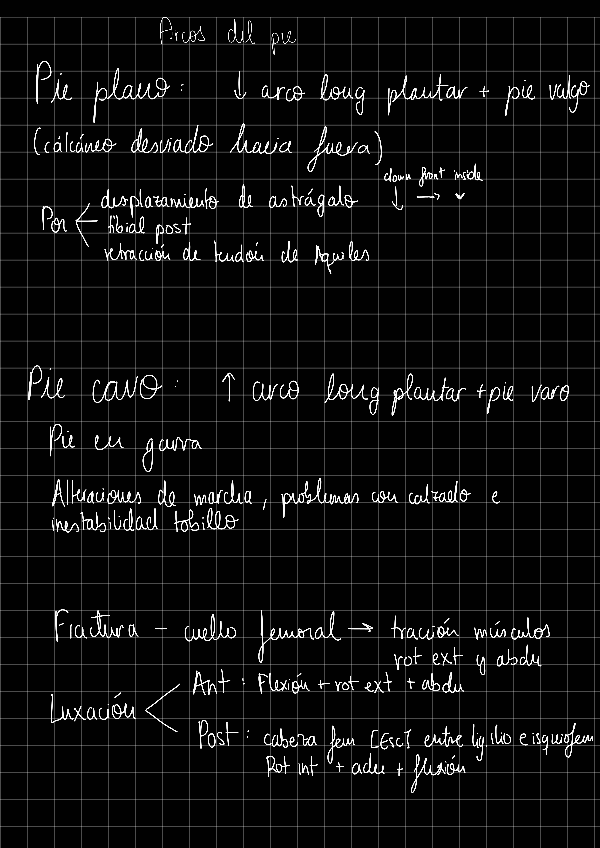 Arcos del pie
Pie plano: ↓ arco long plantar + pie valgo
(calcáneo desviado hacia fuera)
down front inside
↓ → ˅
Por
desplazamiento de astrágalo
tibial post
retracción de tendón de Aquiles
Pie cavo: ↑ arco long plantar + pie varo
Pie en garra
Alteraciones de marcha, problemas con calzado e
inestabilidad tobillo
Fractura - cuello femoral → tracción músculos
rot ext y abdu
Luxación
Ant: Flexión + rot ext + abdu
Post: cabeza fem [Esc] entre lig ilio e isquiofem
Rot int + adu + flexión